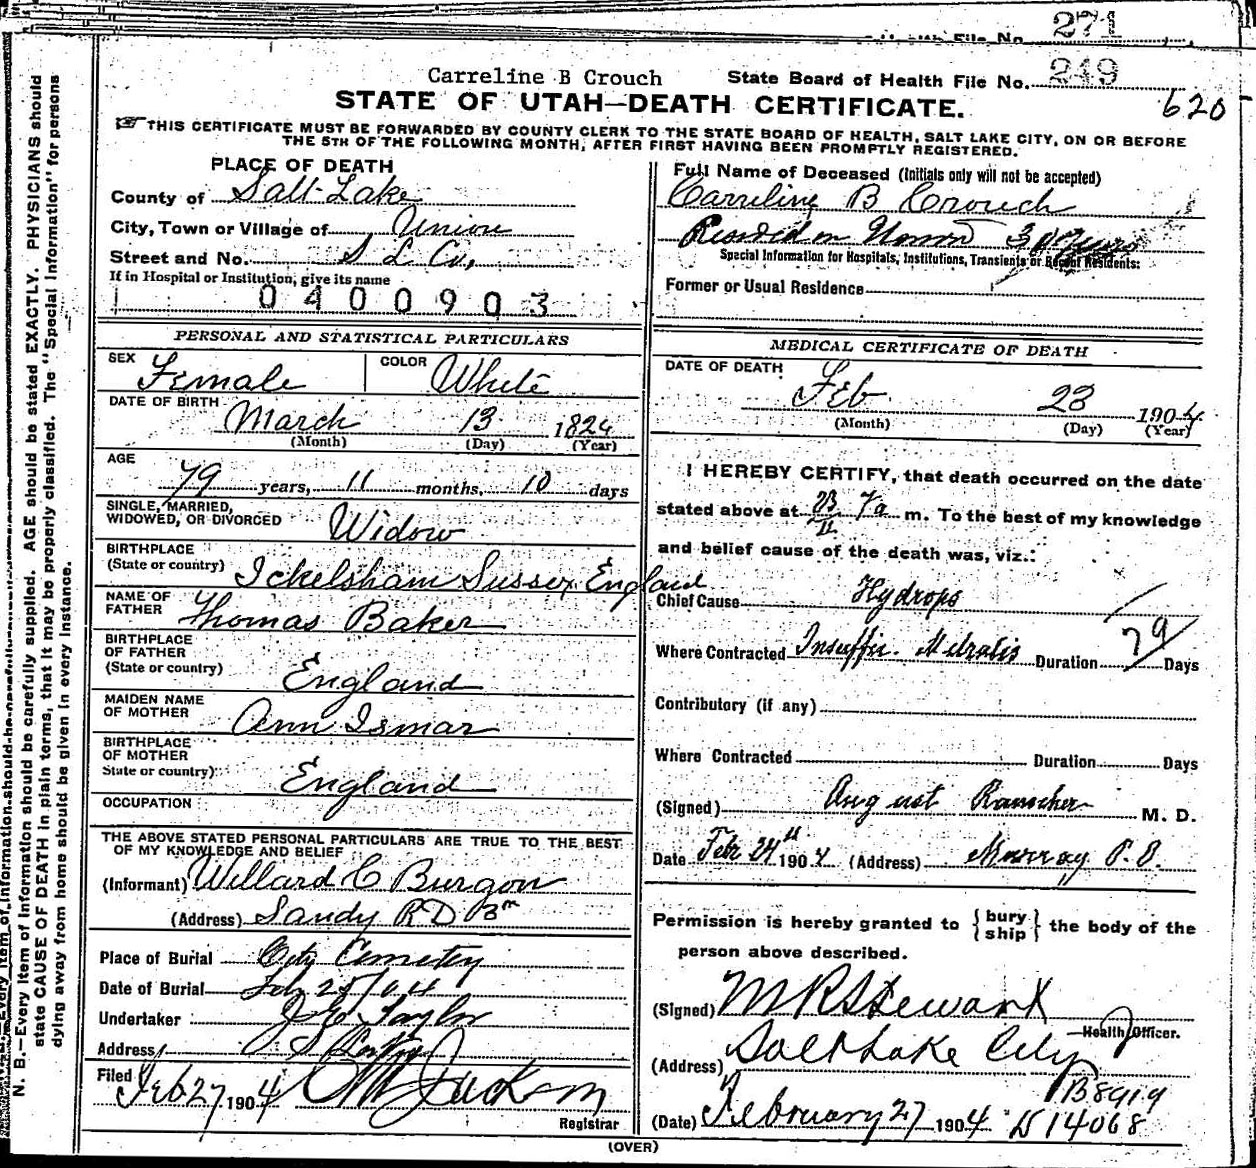 271
Health File No.
Carreline B Crouch State Board of Health File No. 249
STATE OF UTAH—DEATH CERTIFICATE.
620
THIS CERTIFICATE MUST BE FORWARDED BY COUNTY CLERK TO THE STATE BOARD OF HEALTH, SALT LAKE CITY, ON OR BEFORE
THE 5TH OF THE FOLLOWING MONTH, AFTER FIRST HAVING BEEN PROMPTLY REGISTERED.
N. B.—Every item of information should be carefully supplied. AGE should be stated EXACTLY. PHYSICIANS should
state CAUSE OF DEATH in plain terms, that it may be properly classified. The "Special Information" for persons
dying away from home should be given in every instance.
PLACE OF DEATH
County of Salt Lake
City, Town or Village of Union
Street and No. S L Co,
If in Hospital or Institution, give its name
0400903
PERSONAL AND STATISTICAL PARTICULARS
SEX Female COLOR White
DATE OF BIRTH March 13 1824
(Month) (Day) (Year)
AGE
79 years, 11 months, 10 days
SINGLE, MARRIED,
WIDOWED, OR DIVORCED Widow
BIRTHPLACE
(State or country) Ickelsham Sussex England
NAME OF
FATHER Thomas Baker
BIRTHPLACE
OF FATHER
(State or country) England
MAIDEN NAME
OF MOTHER Ann Ismar
BIRTHPLACE
OF MOTHER
State or country) England
OCCUPATION
THE ABOVE STATED PERSONAL PARTICULARS ARE TRUE TO THE BEST
OF MY KNOWLEDGE AND BELIEF
(Informant) Willard C Burgon
(Address) Sandy R D
Place of Burial City Cemetery
Date of Burial Feb 25/04
Undertaker Taylor
Address
Filed Feb 27 1904
Registrar
Full Name of Deceased (Initials only will not be accepted)
Carreline B Crouch
Resided in Union 30 years
Special Information for Hospitals, Institutions, Transients or Recent Residents:
Former or Usual Residence
MEDICAL CERTIFICATE OF DEATH
DATE OF DEATH
Feb 23 1904
(Month) (Day) (Year)
I HEREBY CERTIFY, that death occurred on the date
stated above at 23/II 7a m. To the best of my knowledge
and belief cause of the death was, viz.:
Chief Cause Hydrops
Where Contracted Insuffic. Mitralis Duration 79 Days
Contributory (if any)
Where Contracted Duration Days
(Signed) August Rauscher M. D.
Date Feb 24th 1904 (Address) Murray P. O.
Permission is hereby granted to { bury ship } the body of the
person above described.
(Signed) M R Stewart
Health Officer.
(Address) Salt Lake City
B8919
(Date) February 27 1904 D 14068
(OVER)